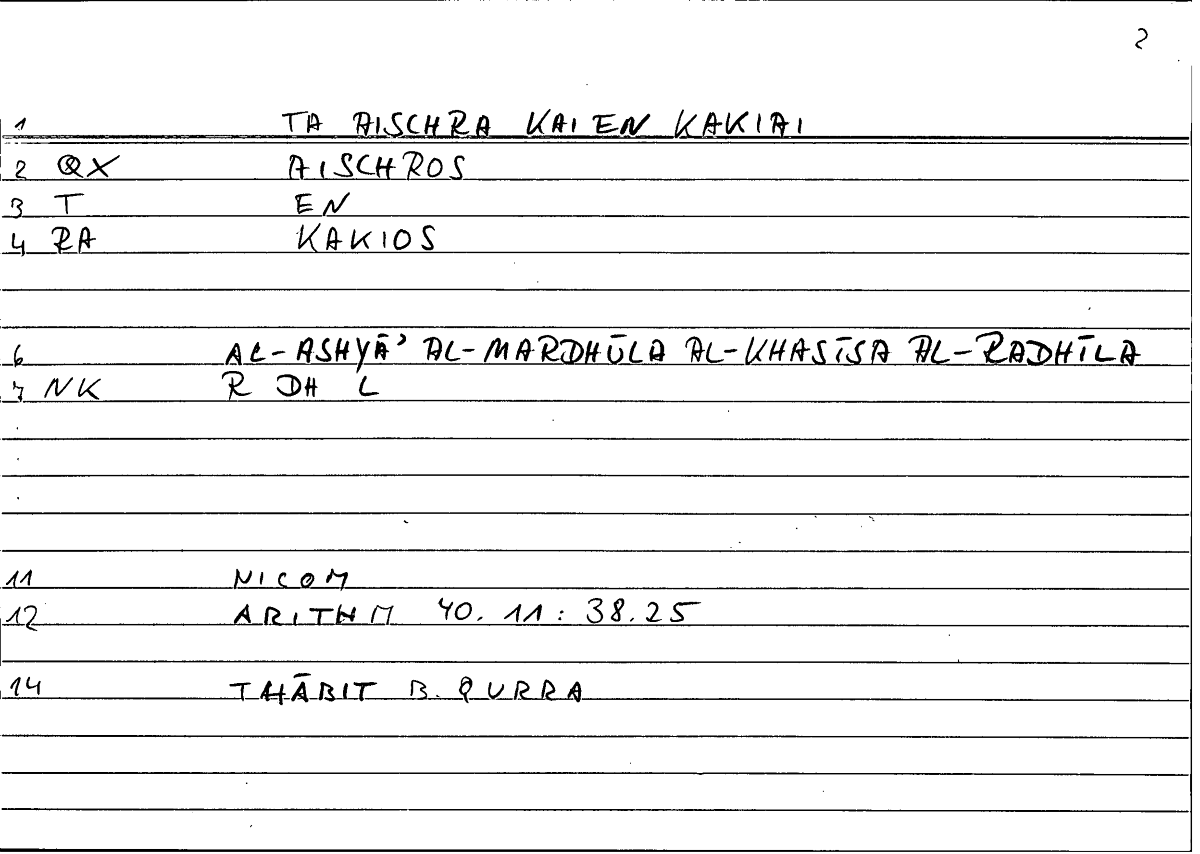 2
1 TA AISCHRA KAI EN KAKIAI
2 QX AISCHROS
3 T EN
4 RA KAKIOS
6 AL-ASHYĀ' AL-MARDHŪLA AL-KHASĪSA AL-RADHĪLA
7 NK R DH L
11 NICOM
12 ARITHM 40. 11 : 38.25
14 THĀBIT B. QURRA